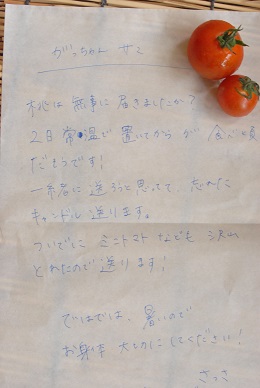 がっちゃん サマ
桃は無事に届きましたか?
2日常温で置いてからが 食べ頃
だそうです!
一緒に送ろうと思ってて、忘れた
キャンドル送ります。
ついでに ミニトマトなども 沢山
とれたので送ります!
ではでは、暑いので
お身体 大切にしてください!
さつき